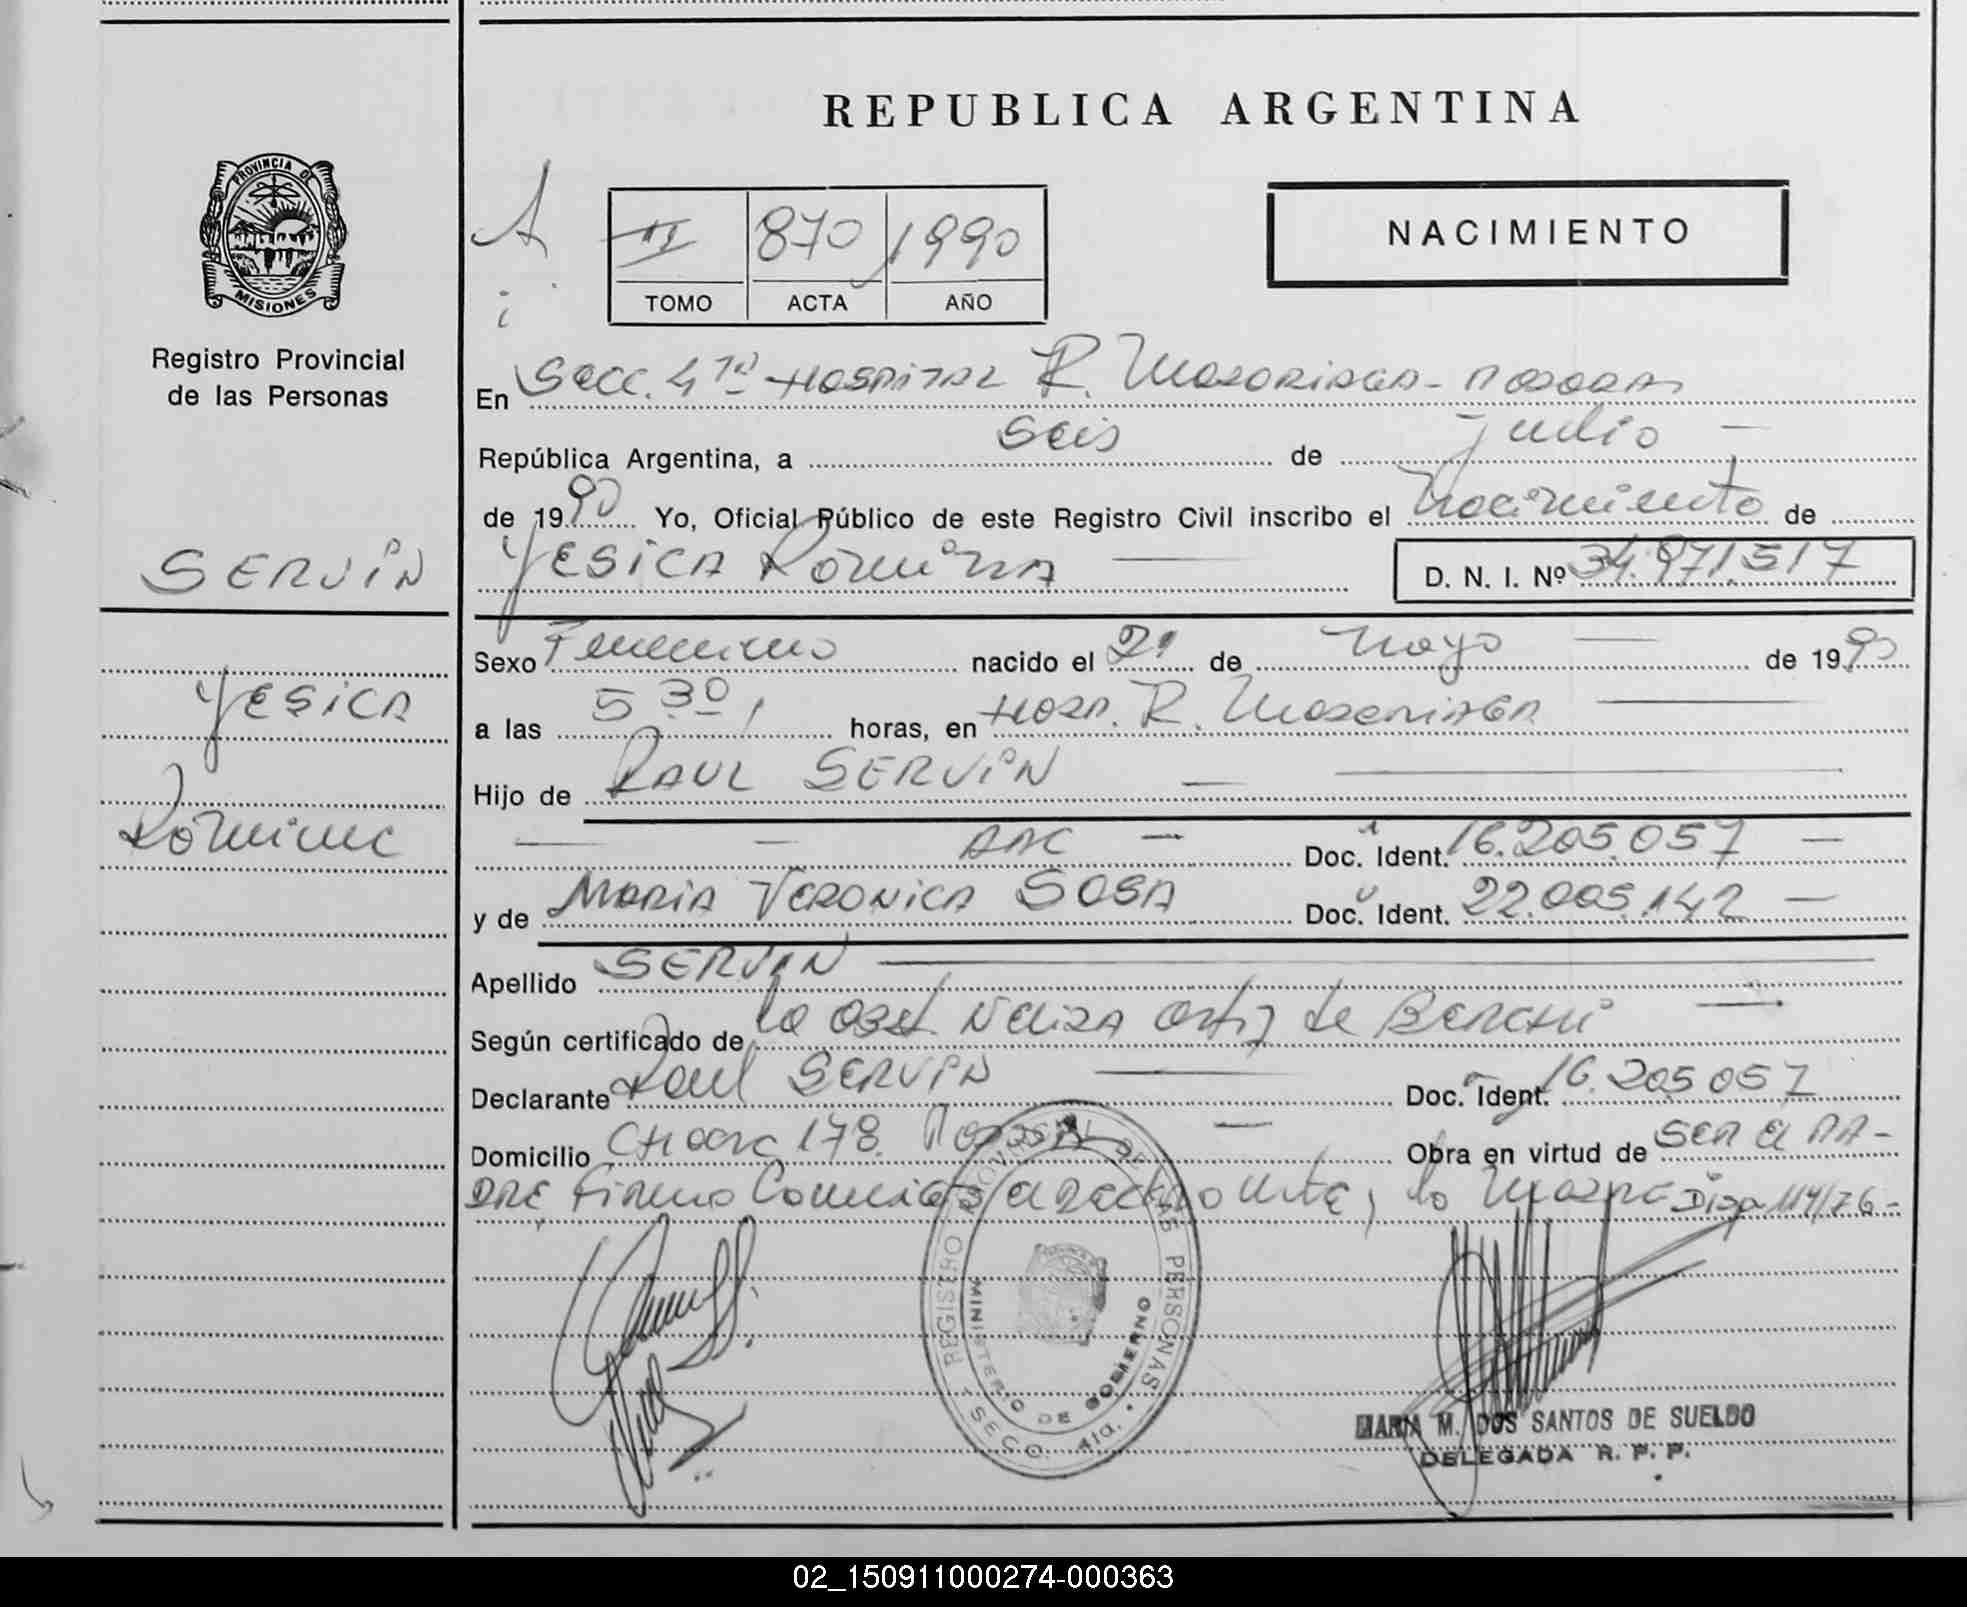 REPUBLICA ARGENTINA
PROVINCIA DE
MISIONES
Registro Provincial
de las Personas
II 870 1990
TOMO ACTA AÑO
NACIMIENTO
En Secc. 4ta Hospital R. Madariaga - Posadas
República Argentina, a seis de julio —
de 1990 Yo, Oficial Público de este Registro Civil inscribo el Nacimiento de
SERVIN
YESICA Romina — D. N. I. Nº 34.971.517
Sexo Femenino nacido el 21 de Mayo — de 1990
YESICA
a las 5 30, horas, en Hosp. R. Madariaga —
Hijo de RAUL SERVIN — —
Romina
— — — Doc. Ident. 16.205.057 —
y de MARIA VERONICA SOSA Doc. Ident. 22.005.142 —
Apellido SERVIN —
Según certificado de la Obst. Nelida Ortiz de —
Declarante Raul SERVIN — Doc. Ident. 16.205.057
Domicilio 178. Posadas — Obra en virtud de SER el PA-
DRE, Firma ante, la Madre Disp. 114/76-
REGISTRO PROVINCIAL DE LAS PERSONAS
MINISTERIO DE GOBIERNO
SECC. 4ta.
MARIA M. DOS SANTOS DE SUELDO
DELEGADA R. P. P.
02_150911000274-000363